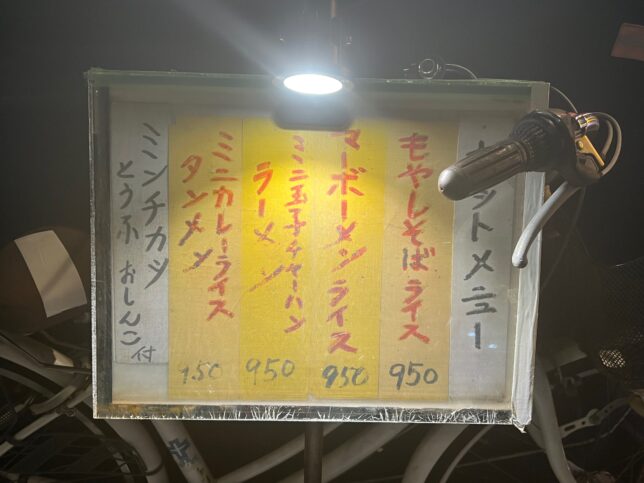 ットメニュー
もやしそばライス
950
マーボーメンライス
950
ミニ玉子チャーハン
ラーメン
950
ミニカレーライス
タンメン
ミンチカツ
とうふ おしんこ付